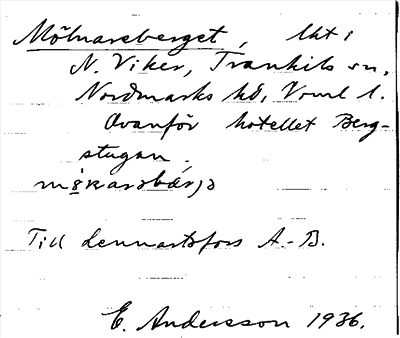 Mölnarsberget, lht i
N. Viker, Trankils sn,
Nordmarks hd, Vrml l.
Ovanför hotellet Berg-
stugan.
Till Lennartsfors A.-B.
E. Andersson 1936.